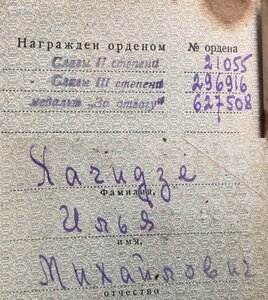 Награжден орденом № ордена
Славы II степени 21055
Славы III степени 296916
медалью „За отвагу" 627508
Хачидзе
Фамилия,
Илья
имя,
Михайлович
отчество